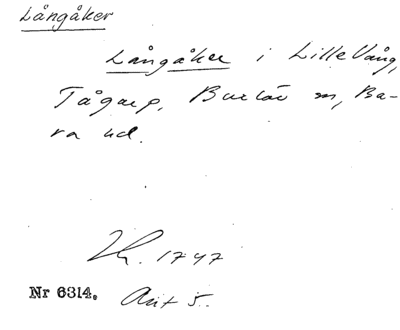 Långåker
Långåker i Lille Vång,
Tågarp, Burlöv sn, Ba-
ra hd.
Lh. 1747
Nr 6314. Akt 5.